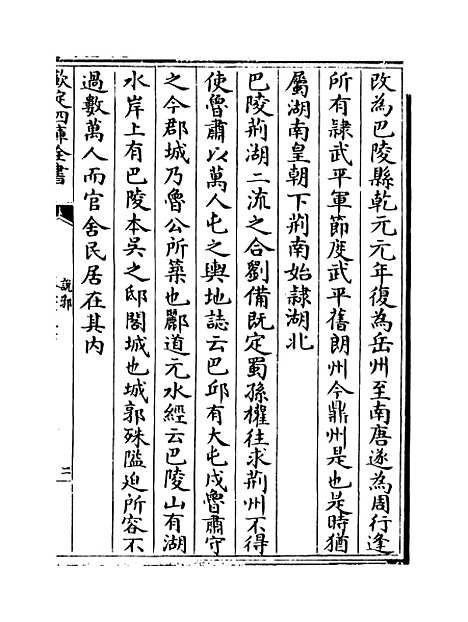 改為巴陵縣乾元元年復為岳州至南唐遂為周行逢
所有隷武平軍節度武平舊朗州今鼎州是也是時猶
屬湖南皇朝下荆南始隷湖北
巴陵荆湖二流之合劉備既定蜀孫權往求荆州不得
使魯肅以萬人屯之輿地誌云巴邱有大屯戍魯肅守
之今郡城乃魯公所築也酈道元水經云巴陵山有湖
水岸上有巴陵本吳之邸閣城也城郭殊隘迫所容不
過數萬人而官舍民居在其内
欽定四庫全書
說郛
二